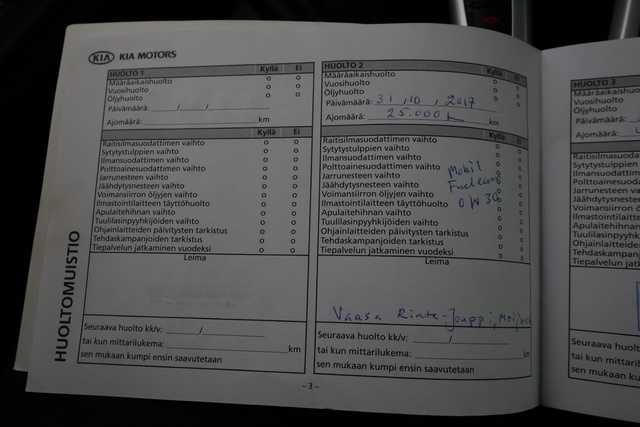 KIA KIA MOTORS
HUOLTO 1 Kyllä Ei
Määräaikaishuolto o o
Vuosihuolto o o
Öljyhuolto o o
Päivämäärä: / /
Ajomäärä: km
Kyllä Ei
Raitisilmasuodattimen vaihto o o
Sytytystulppien vaihto o o
Ilmansuodattimen vaihto o o
Polttoainesuodattimen vaihto o o
Jarrunesteen vaihto o o
Jäähdytysnesteen vaihto o o
Voimansiirron öljyjen vaihto o o
Ilmastointilaitteen täyttöhuolto o o
Apulaitehihnan vaihto o o
Tuulilasinpyyhkijöiden vaihto o o
Ohjainlaitteiden päivitysten tarkistus o o
Tehdaskampanjoiden tarkistus o o
Tiepalvelun jatkaminen vuodeksi o o
Leima
Seuraava huolto kk/v: /
tai kun mittarilukema: km
sen mukaan kumpi ensin saavutetaan
HUOLTO 2 Kyllä Ei
Määräaikaishuolto o o
Vuosihuolto o o
Öljyhuolto o o
Päivämäärä: 31 / 10 / 2017
Ajomäärä: 25.000 km
Kyllä Ei
Raitisilmasuodattimen vaihto o o
Sytytystulppien vaihto o o
Ilmansuodattimen vaihto o o
Polttoainesuodattimen vaihto Mobil o o
Jarrunesteen vaihto o o
Jäähdytysnesteen vaihto o o
Voimansiirron öljyjen vaihto o o
Ilmastointilaitteen täyttöhuolto 0W30 o o
Apulaitehihnan vaihto o o
Tuulilasinpyyhkijöiden vaihto o o
Ohjainlaitteiden päivitysten tarkistus o o
Tehdaskampanjoiden tarkistus o o
Tiepalvelun jatkaminen vuodeksi o o
Leima
Vaasa Rinta-Jouppi,
Seuraava huolto kk/v: /
tai kun mittarilukema: km
sen mukaan kumpi ensin saavutetaan
HUOLTO 3
Määräaikaishuolto
Vuosihuolto
Öljyhuolto
Päivämäärä:
Ajomäärä:
HUOLTOMUISTIO
- 3 -